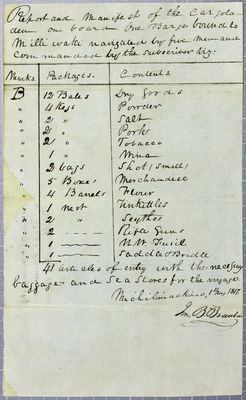 Report and Manifest of the Cargo la
den on board One Barge bound to
Millwake navigated by five men and
commanded by the subscriber viz:
Marks. Packages. Contents
B 12 Bales Dry Goods
" 4 Kegs Powder
" 2 " Salt
" 2 " Pork
" 2 " Tobacco
" 1 " Wine
" 2 bags Shot (Small)
" 5 Boxes Merchandise
" 4 Barrels Flour
" 1 nest Tinkettles
" 2 " Scythes
" 2 — Rifle Guns
" 1 — N.W. Fusil
" 1 — Saddle & Bridle
41 articles of entry with the necessary
baggage and Sea Stores for the voyage
Michilimackinac, 1817
Jn. B.